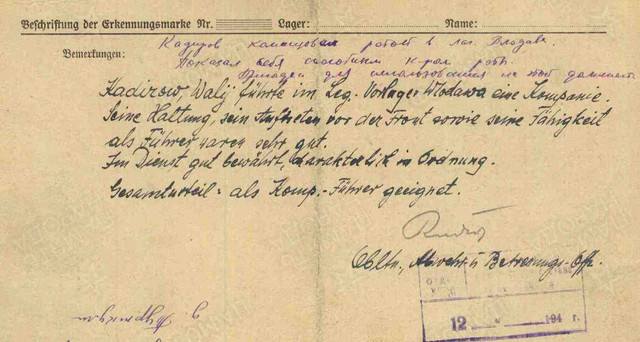 Beschriftung der Erkennungsmarke Nr. Lager: Name:
Bemerkungen:
Кадиров командовал ротой в лаг. Влодава.
Показал себя способным к-ром роты.
для использования
Kadirow Walij führte im Leg. Vorlager Wlodawa eine Kompanie.
Seine Haltung, sein Auftreten vor der Front sowie seine Fähigkeit
als Führer waren sehr gut.
Im Dienst gut bewährt, charakterlich in Ordnung.
Gesamturteil: als Komp.-Führer geeignet.
Obltn., Abwehr- u. Betreuungs-Offz.
12 194 г.